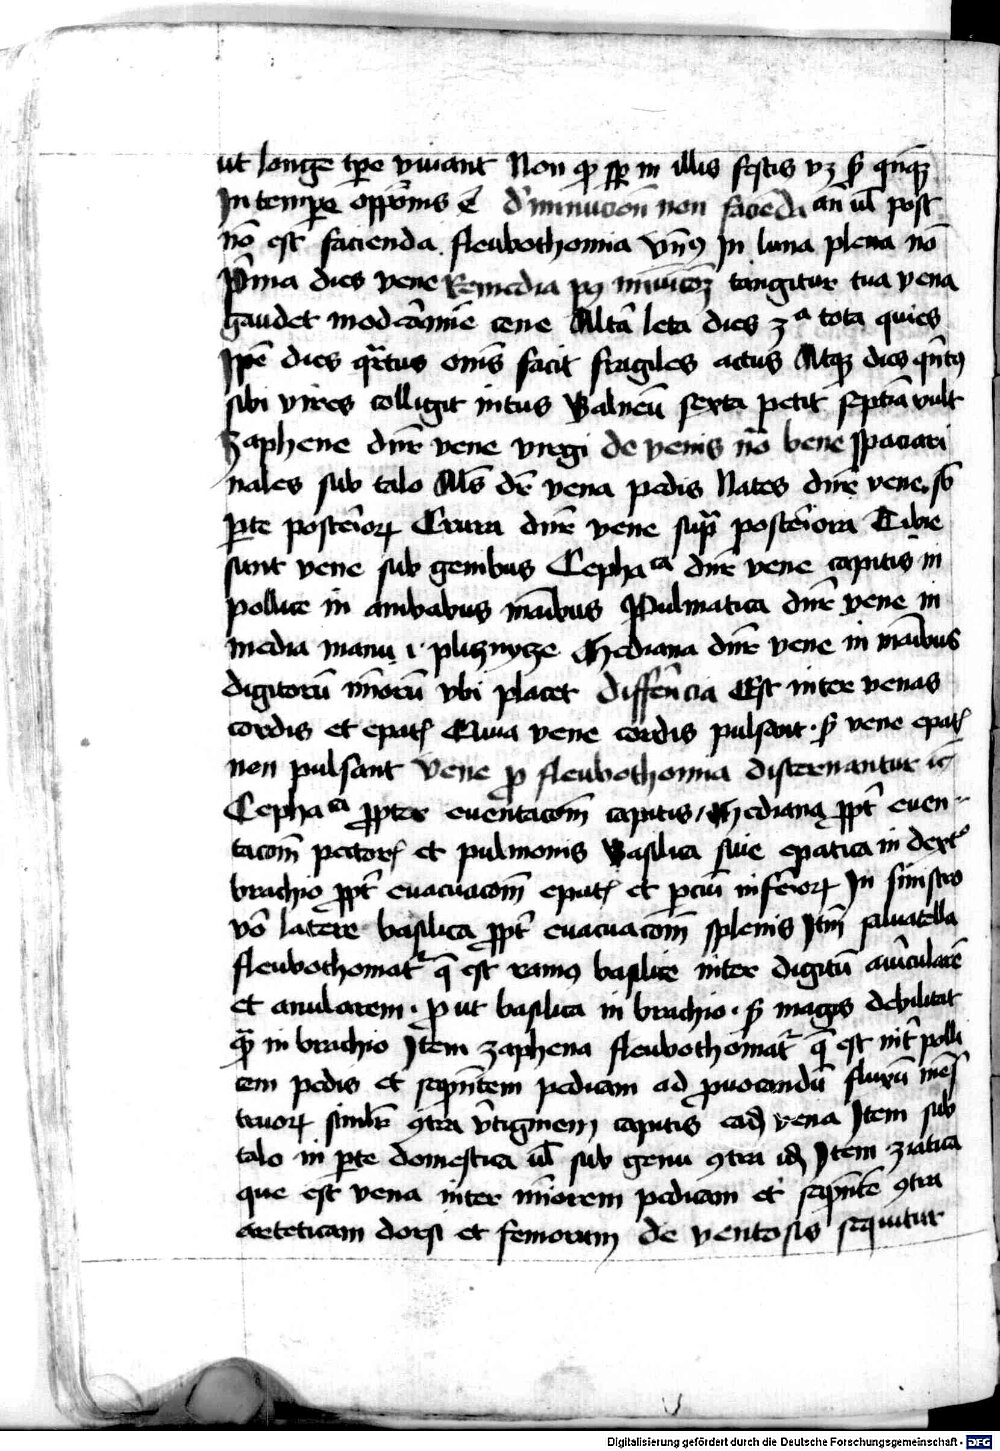 ut longe tpe viuant Non ꝙ sp in illis festis vꝫ sꝫ qn̄qꝫ
In tempe opp̄onis ē d' minucion non facieda an̄ ul post
nō est facienda fleubothomia vn̄ꝯ In luna plena nō
P̄ma dies vene Remedia pꝯ mīuicōꝫ tangitur tua vena
gaudet mod cene Altā leta dies 3ª tota quies
Ipē dies qrtus oīns facit fragiles actus Atqꝫ dies qn̄tꝯ
sibi vires colligit intus Balneū sexta petit septīa vult
Zaphene dnr̄ vene virgi de venis nō bene spaciari
nales sub talo Al's dr̄ vena pedis Nates dnr̄ vene sb
ꝑte posterioꝝ Crura dnr̄ vene supͣ posteriora Tibie
sunt vene sub genibus Cephaᶜᵃ dnr̄ vene capitis in
pollice in ambabus māibus Pulmatica dnr̄ vene in
media manu .i. Mediana dnr̄ vene in māibus
digitorū mīorū vbi placet Differēncia Est inter venas
cordis et epatꝭ Quia vene cordis pulsant · sꝫ vene epatꝭ
non pulsant Vene ꝓ fleubothomia discernantur
Cephaᶜᵃ ꝓpter euentacōm capitis / Mediana ꝓpt' euen-
tacōm pectorꝭ et pulmonis Basilica siue epatica in dextꝰ
brachio ꝓpt' euacuacōm epatꝭ et pciū inferioꝝ In sinistro
vō latere basilica ꝓpt' euacuacōm splenis Itm̄ saluatella
fleubothomatͬ q̄ est ramꝯ basilice inter digitū auricularē
et anularem · ꝓ ut basilica in brachio · sꝫ magis debilitat
qͣ in brachio Item zaphena fleubothomatͬ q̄ est int' polli
cem pedis et seqn̄tem pedicam ad ꝓuocandū fluxū mēs
truoꝝ simlr̄ ꝯtra v'tiginem capitis eadꝫ vena Item sub
talo in ꝑte domestica ul sub genu ꝯtra idꝫ Item ziatica
que est vena inter mīorem pedicam et seqn̄tē ꝯtra
arteticam dorsi et femorum de ventosis sequitur
Digitalisierung gefördert durch die Deutsche Forschungsgemeinschaft - DFG